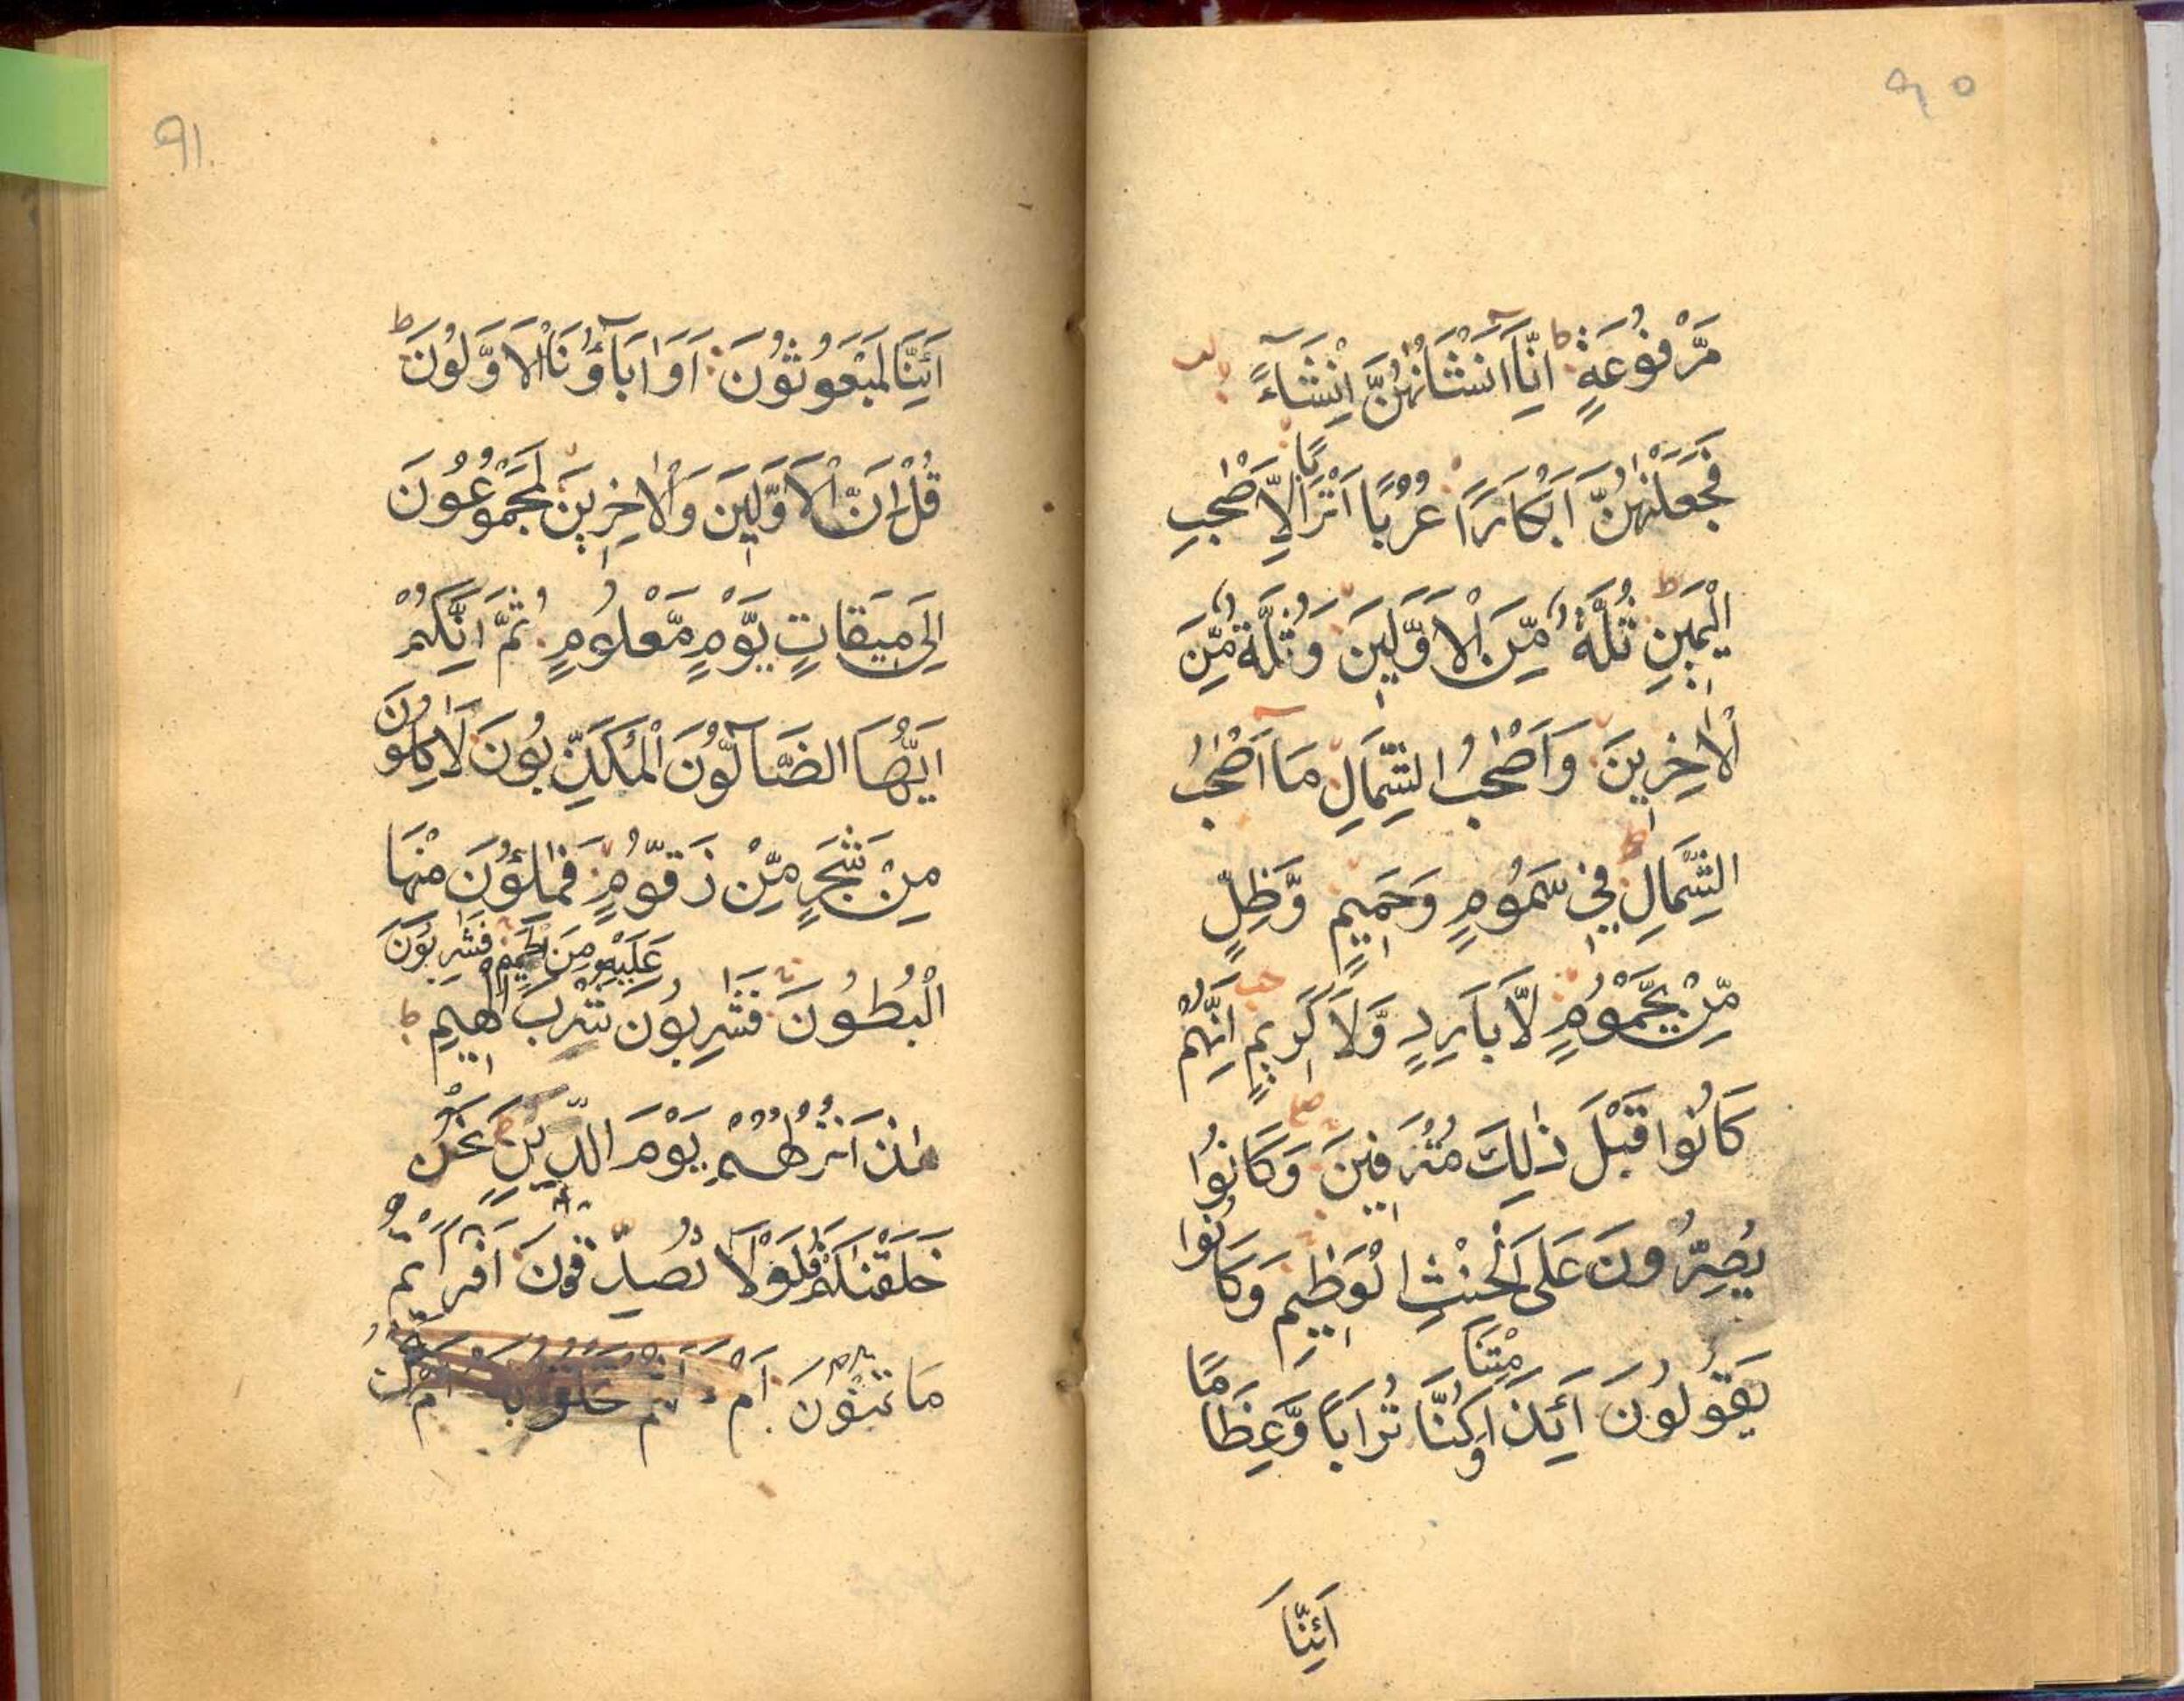 ۹۰
مَّرْفُوْعَةٍ اِنَّاۤ اَنْشَاْنٰهُنَّ اِنْشَآءً
فَجَعَلْنٰهُنَّ اَبْكَارًا عُرُبًا اَتْرَابًا لِّاَصْحٰبِ
الْيَمِيْنِ ثُلَّةٌ مِّنَ الْاَوَّلِيْنَ وَثُلَّةٌ مِّنَ
الْاٰخِرِيْنَ وَاَصْحٰبُ الشِّمَالِ مَا اَصْحٰبُ
الشِّمَالِ فِيْ سَمُوْمٍ وَحَمِيْمٍ وَّظِلٍّ
مِّنْ يَّحْمُوْمٍ لَّا بَارِدٍ وَّلَا كَرِيْمٍ اِنَّهُمْ
كَانُوْا قَبْلَ ذٰلِكَ مُتْرَفِيْنَ وَكَانُوْا
يُصِرُّوْنَ عَلَى الْحِنْثِ الْعَظِيْمِ وَكَانُوْا
يَقُوْلُوْنَ اَئِذَا مِتْنَا وَكُنَّا تُرَابًا وَّعِظَامًا
اَئِنَّا
۹۱
اَئِنَّا لَمَبْعُوْثُوْنَ اَوَاٰبَآؤُنَا الْاَوَّلُوْنَ
قُلْ اِنَّ الْاَوَّلِيْنَ وَالْاٰخِرِيْنَ لَمَجْمُوْعُوْنَ
اِلٰى مِيْقَاتِ يَوْمٍ مَّعْلُوْمٍ ثُمَّ اِنَّكُمْ
اَيُّهَا الضَّآلُّوْنَ الْمُكَذِّبُوْنَ لَاٰكِلُوْنَ
مِنْ شَجَرٍ مِّنْ زَقُّوْمٍ فَمَالِـُٔوْنَ مِنْهَا
الْبُطُوْنَ فَشٰرِبُوْنَ عَلَيْهِ مِنَ الْحَمِيْمِ فَشٰرِبُوْنَ شُرْبَ الْهِيْمِ
هٰذَا نُزُلُهُمْ يَوْمَ الدِّيْنِ نَحْنُ
خَلَقْنٰكُمْ فَلَوْلَا تُصَدِّقُوْنَ اَفَرَءَيْتُمْ
مَا تُمْنُوْنَ اَمْ نَحْنُ